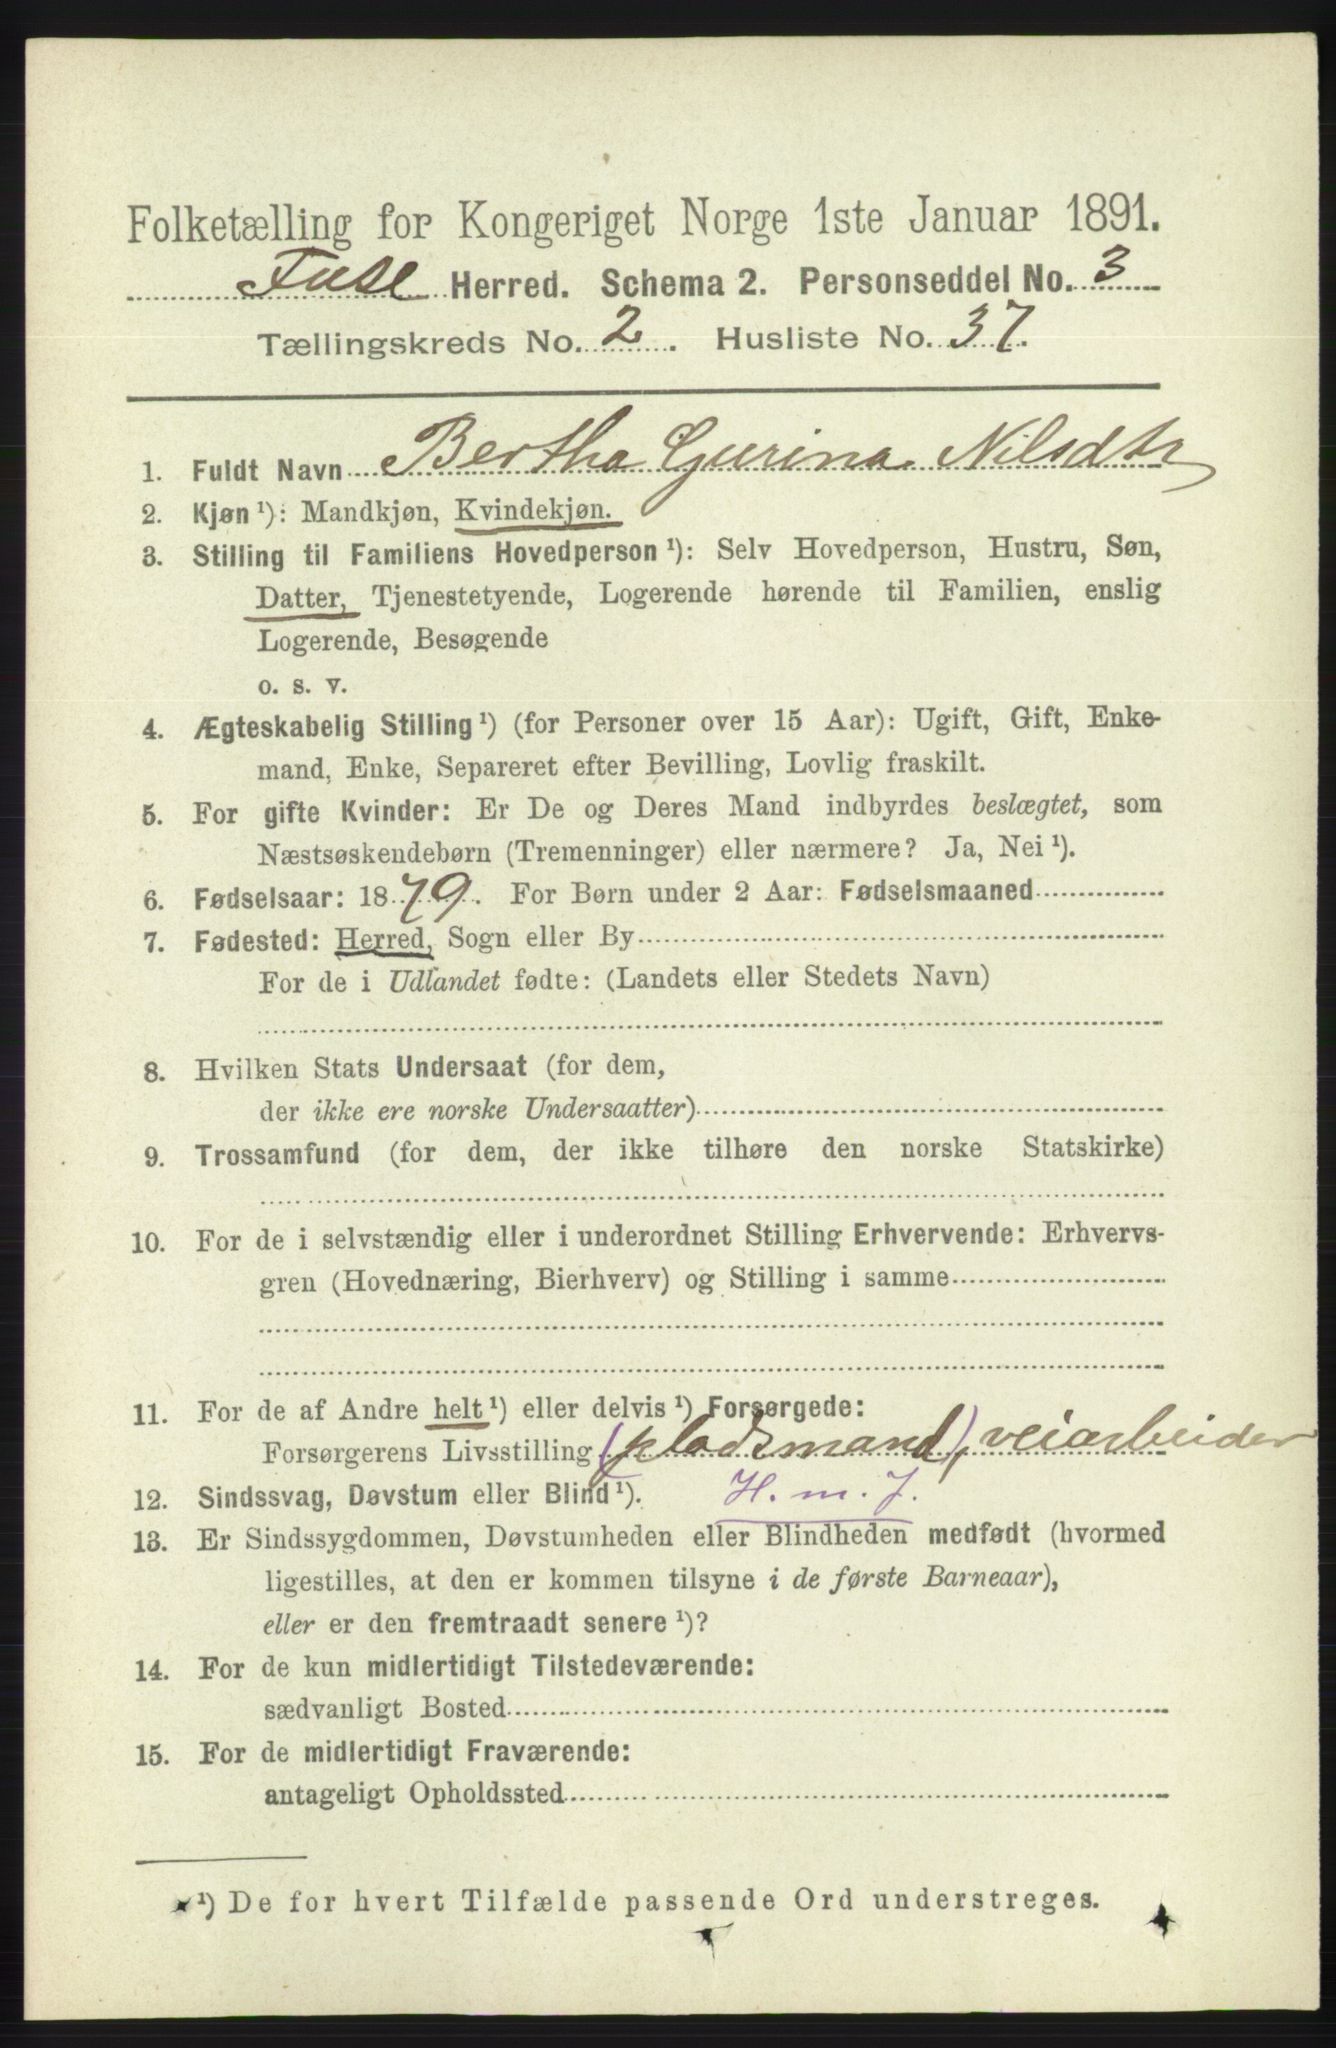 Folketælling for Kongeriget Norge 1ste Januar 1891.
Fuse Herred. Schema 2. Personseddel No. 3
Tællingskreds No. 2. Husliste No. 37.
1. Fuldt Navn Bertha Gurina Nilsdtr
2. Kjøn ¹): Mandkjøn, Kvindekjøn.
3. Stilling til Familiens Hovedperson ¹): Selv Hovedperson, Hustru, Søn,
Datter, Tjenestetyende, Logerende hørende til Familien, enslig
Logerende, Besøgende
o. s. v.
4. Ægteskabelig Stilling ¹) (for Personer over 15 Aar): Ugift, Gift, Enke-
mand, Enke, Separeret efter Bevilling, Lovlig fraskilt.
5. For gifte Kvinder: Er De og Deres Mand indbyrdes beslægtet, som
Næstsøskendebørn (Tremenninger) eller nærmere? Ja, Nei ¹).
6. Fødselsaar: 1879. For Børn under 2 Aar: Fødselsmaaned
7. Fødested: Herred, Sogn eller By
For de i Udlandet fødte: (Landets eller Stedets Navn)
8. Hvilken Stats Undersaat (for dem,
der ikke ere norske Undersaatter)
9. Trossamfund (for dem, der ikke tilhøre den norske Statskirke)
10. For de i selvstændig eller i underordnet Stilling Erhvervende: Erhvervs-
gren (Hovednæring, Bierhverv) og Stilling i samme
11. For de af Andre helt ¹) eller delvis ¹) Forsørgede:
Forsørgerens Livsstilling (pladsmand), veiarbeider
12. Sindssvag, Døvstum eller Blind ¹). H. m. J.
13. Er Sindssygdommen, Døvstumheden eller Blindheden medfødt (hvormed
ligestilles, at den er kommen tilsyne i de første Barneaar),
eller er den fremtraadt senere ¹)?
14. For de kun midlertidigt Tilstedeværende:
sædvanligt Bosted
15. For de midlertidigt Fraværende:
antageligt Opholdssted
¹) De for hvert Tilfælde passende Ord understreges.